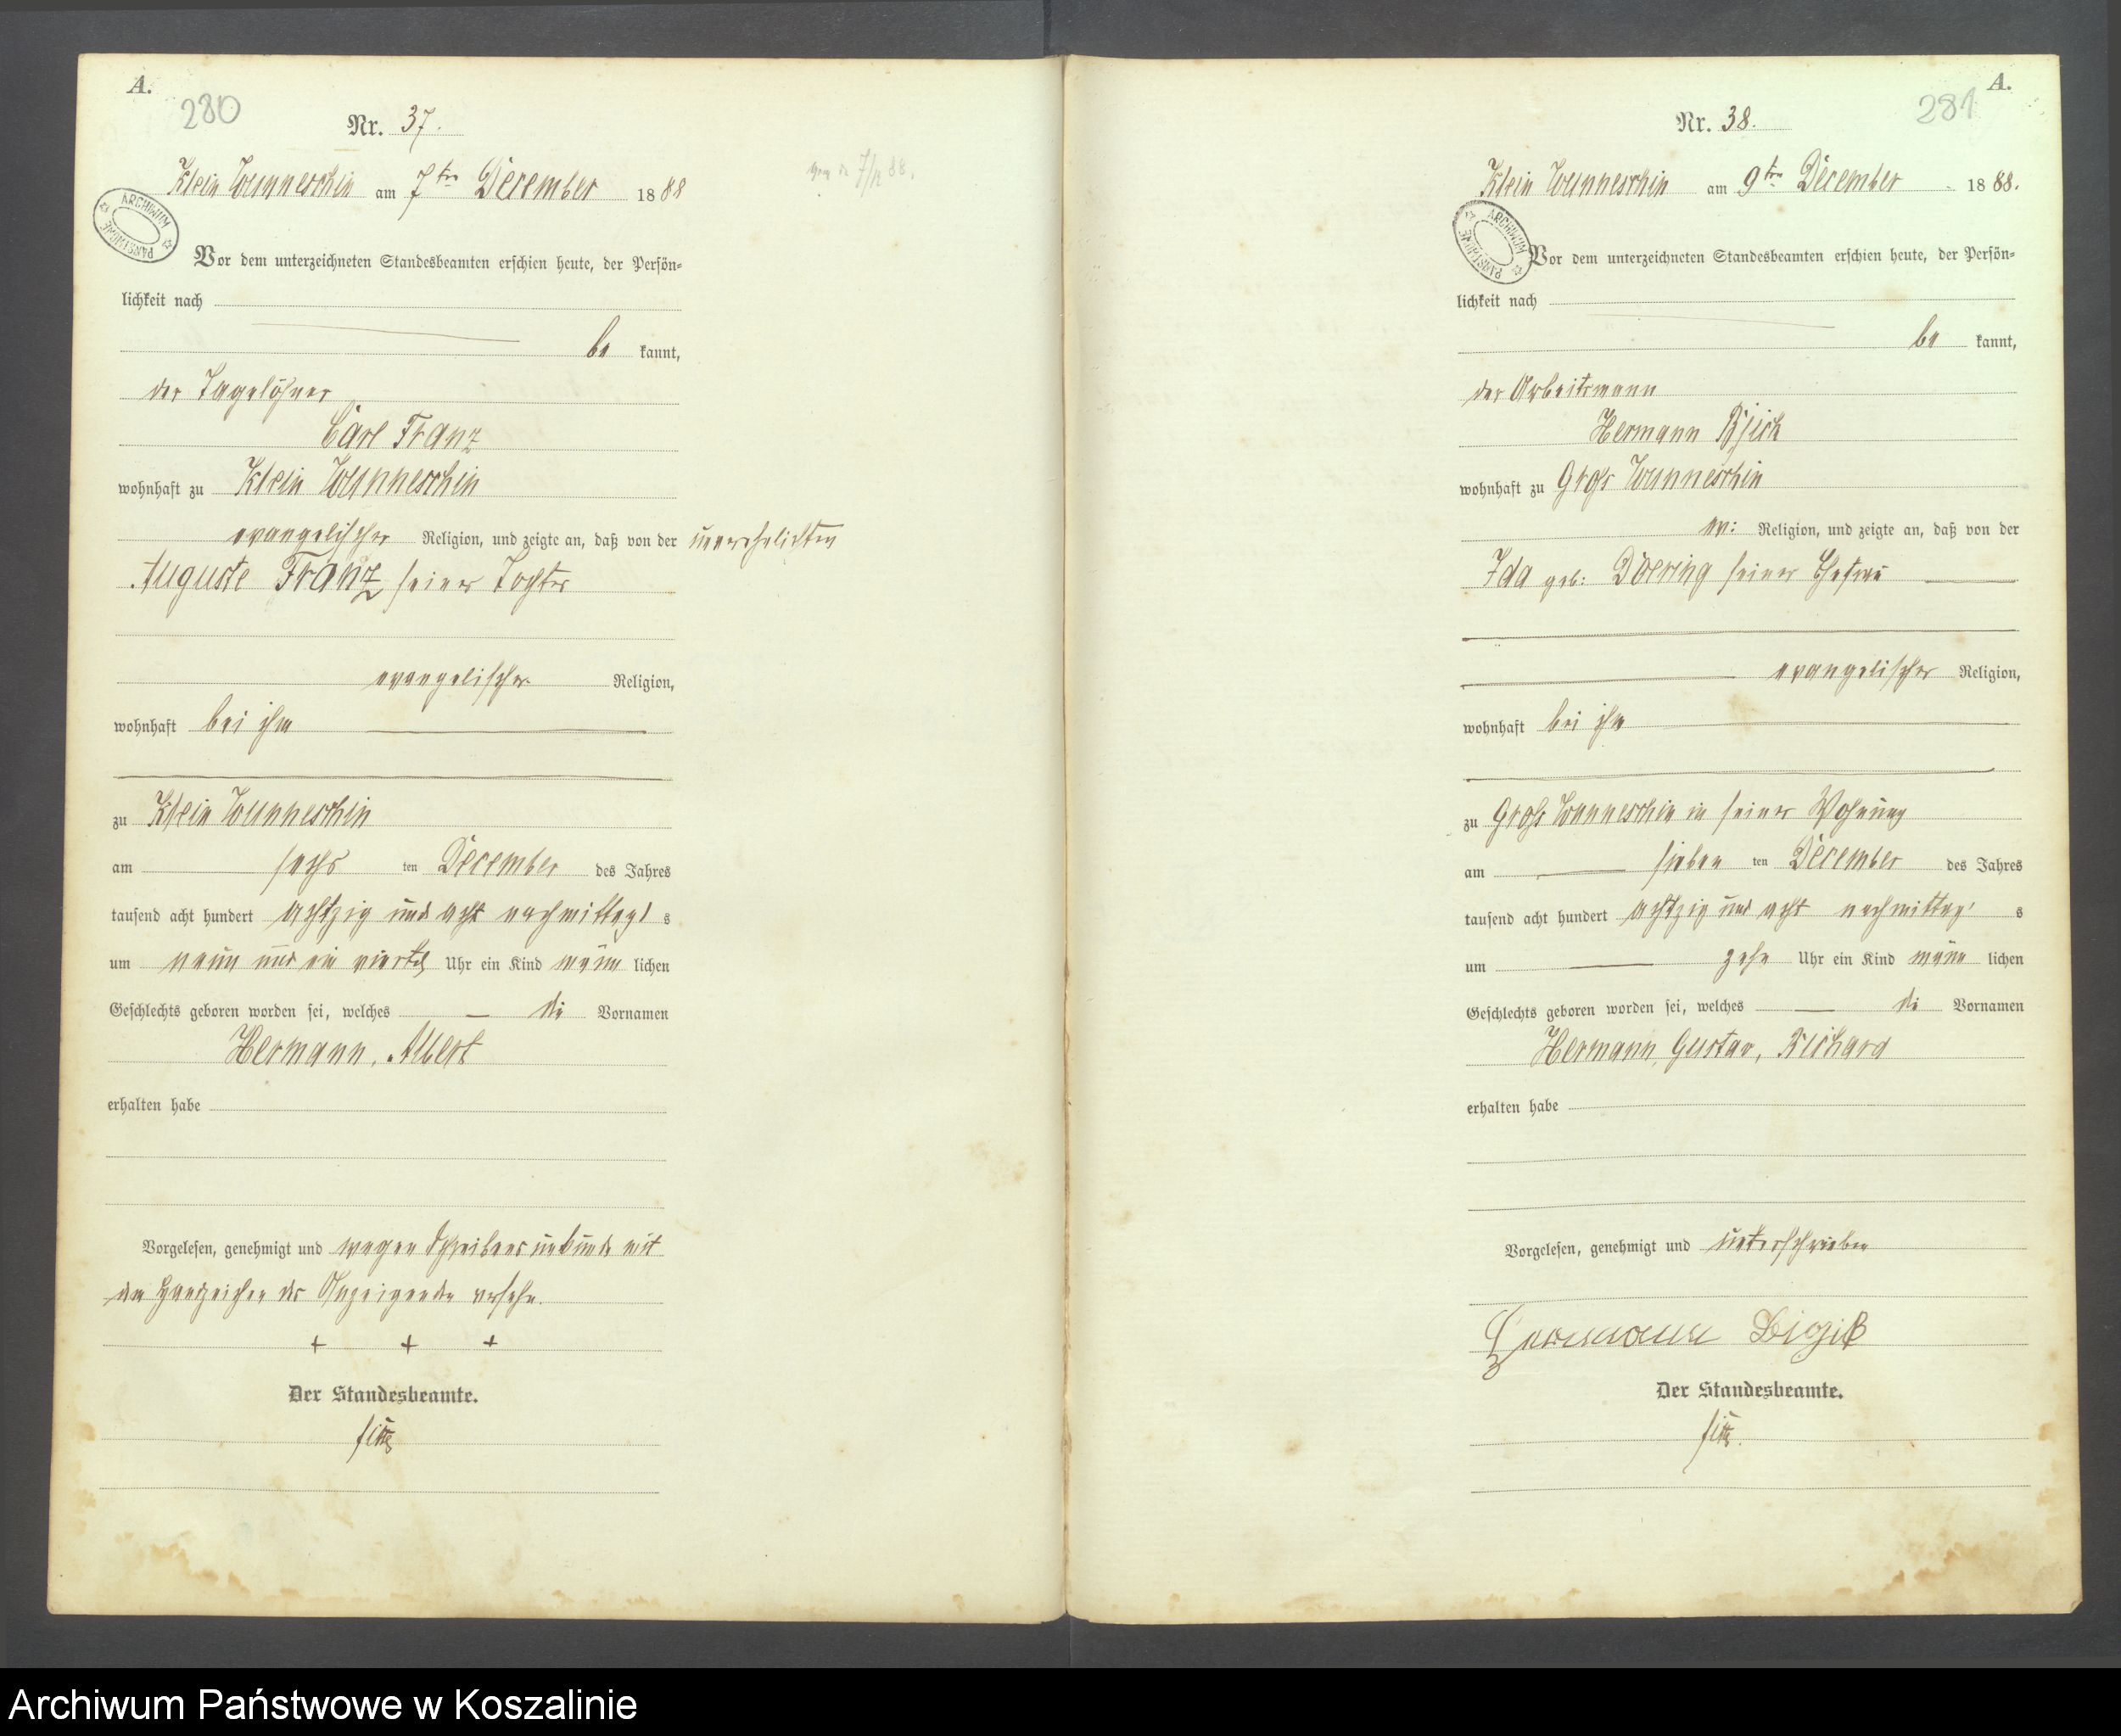 A.
280
Nr. 37.
Klein Wunneschin am 7ten December 1888
ARCHIWUM PAŃSTWOWE
Vor dem unterzeichneten Standesbeamten erschien heute, der Persön=
lichkeit nach
be kannt,
der Tagelöhner
Carl Franz
wohnhaft zu Klein Wunneschin
evangelischer Religion, und zeigte an, daß von der unverehelichten
Auguste Franz seiner Tochter
evangelischer Religion,
wohnhaft bei ihm
zu Klein Wunneschin
am sechs ten December des Jahres
tausend acht hundert achtzig und acht nachmittag s
um neun und ein viertel Uhr ein Kind männ lichen
Geschlechts geboren worden sei, welches die Vornamen
Hermann, Albert
erhalten habe
Vorgelesen, genehmigt und wegen Schreibens unkunde mit
den Handzeichen des Anzeigenden versehn.
+ + +
Der Standesbeamte.
7/12 88.
A.
281
Nr. 38.
Klein Wunneschin am 9ten December 1888.
ARCHIWUM PAŃSTWOWE
Vor dem unterzeichneten Standesbeamten erschien heute, der Persön=
lichkeit nach
be kannt,
der Arbeitsmann
Hermann
wohnhaft zu Groß Wunneschin
ev: Religion, und zeigte an, daß von der
Ida geb: Doering seiner Ehefrau
evangelischer Religion,
wohnhaft bei ihm
zu Groß Wunneschin in seiner Wohnung
am sieben ten December des Jahres
tausend acht hundert achtzig und acht nachmittag s
um zehn Uhr ein Kind männ lichen
Geschlechts geboren worden sei, welches die Vornamen
Hermann, Gustav, Richard
erhalten habe
Vorgelesen, genehmigt und unterschrieben
Hermann
Der Standesbeamte.
Archiwum Państwowe w Koszalinie